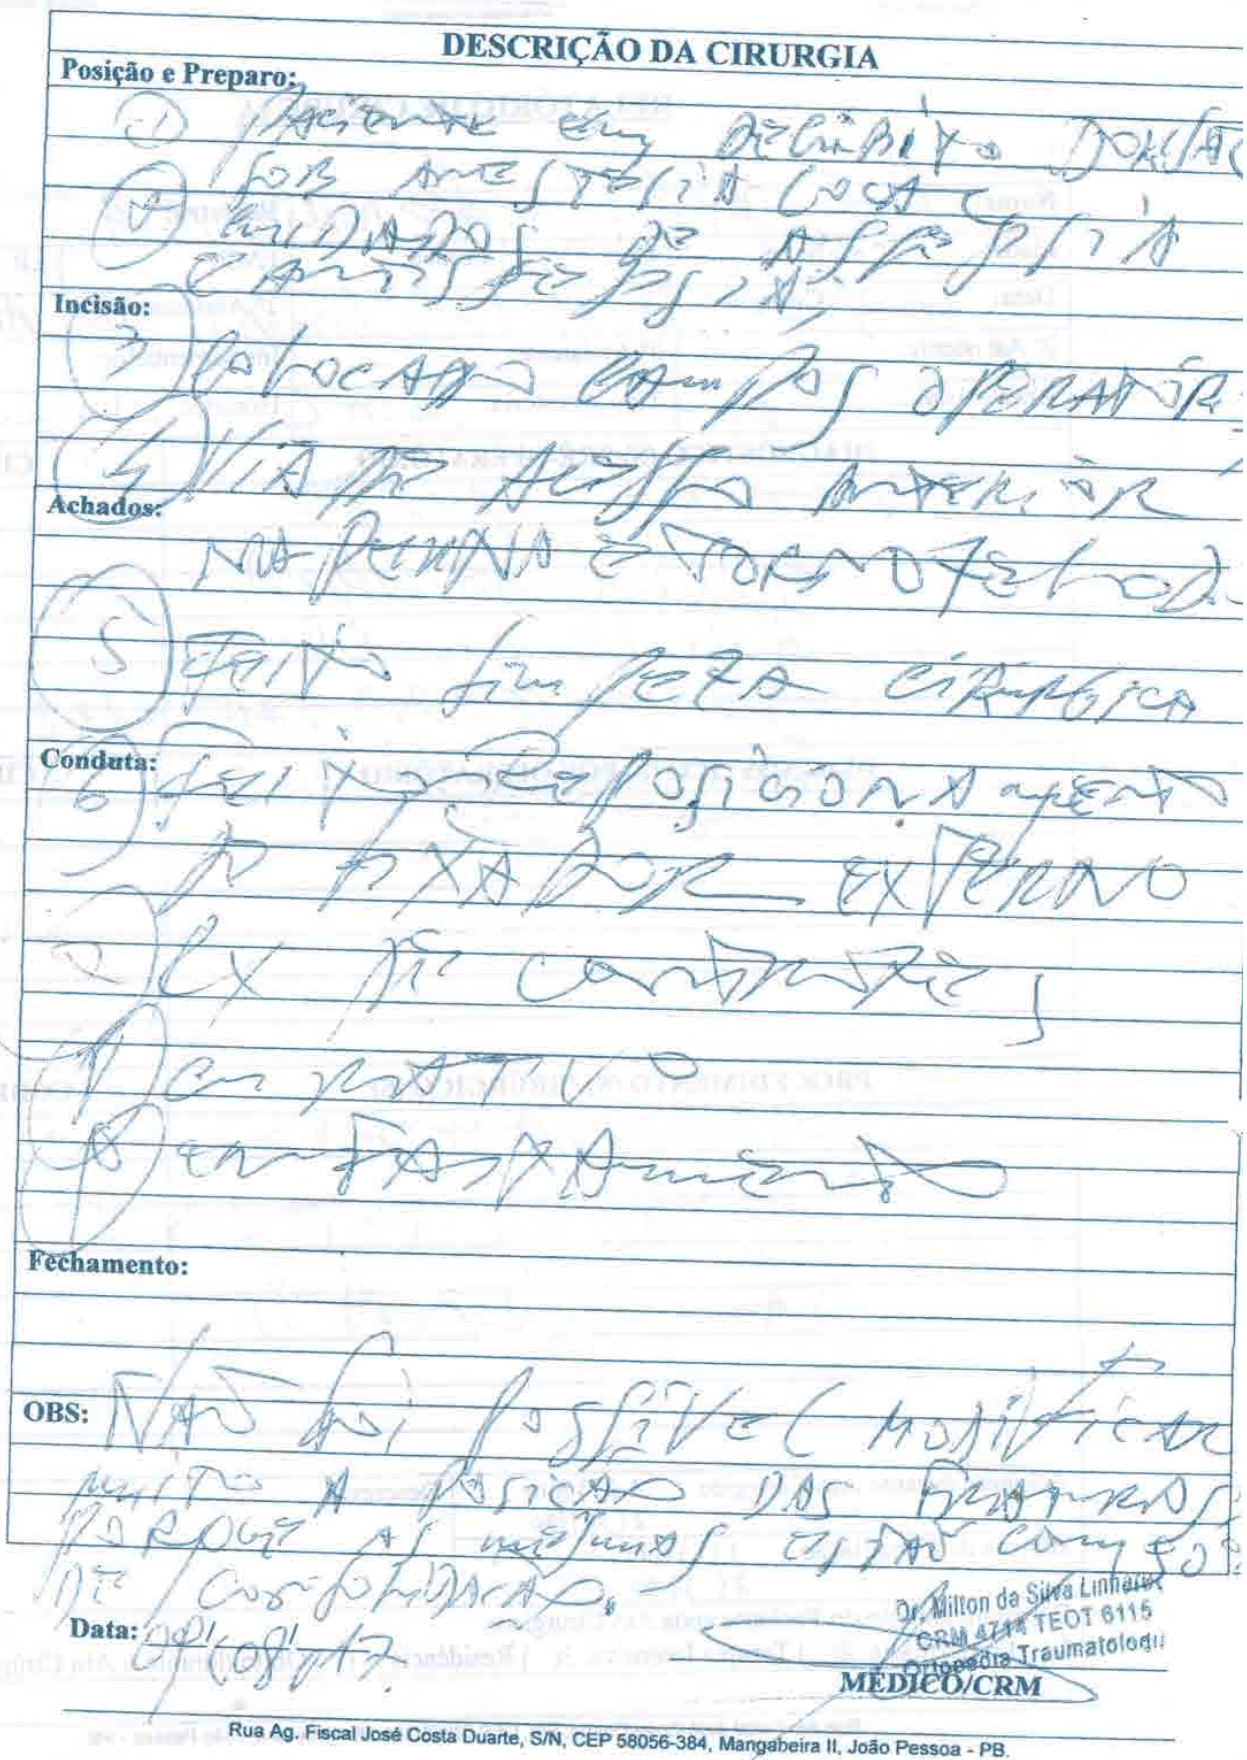 DESCRIÇÃO DA CIRURGIA
Posição e Preparo:
1) PACIENTE EM DECÚBITO DORSAL
SOB ANESTESIA LOCAL
2) CUIDADOS DE ASSEPSIA
E ANTISSEPSIA,
Incisão:
3) COLOCADO CAMPOS OPERATÓR
4) VIA DE ACESSO ANTERIOR
Achados:
NA PERNA E TORNOZELO
5) FEITO LIMPEZA CIRÚRGICA
Conduta:
6) FEITO REPOSICIONAMENTO
D FIXADOR EXTERNO
7) RX DE CONTROLE
CURATIVO
8) ENFAIXAMENTO
Fechamento:
OBS: NÃO FOI POSSÍVEL MODIFICAR
MUITO A POSIÇÃO DAS FRATURAS,
PORQUE AS MESMAS ESTÃO COM
DE CONSOLIDAÇÃO.
Dr. Milton da Silva Linhares
CRM 4714 TEOT 6115
Ortopedia Traumatologi
Data: 08/17
MÉDICO/CRM
Rua Ag. Fiscal José Costa Duarte, S/N, CEP 58056-384, Mangabeira II, João Pessoa - PB.